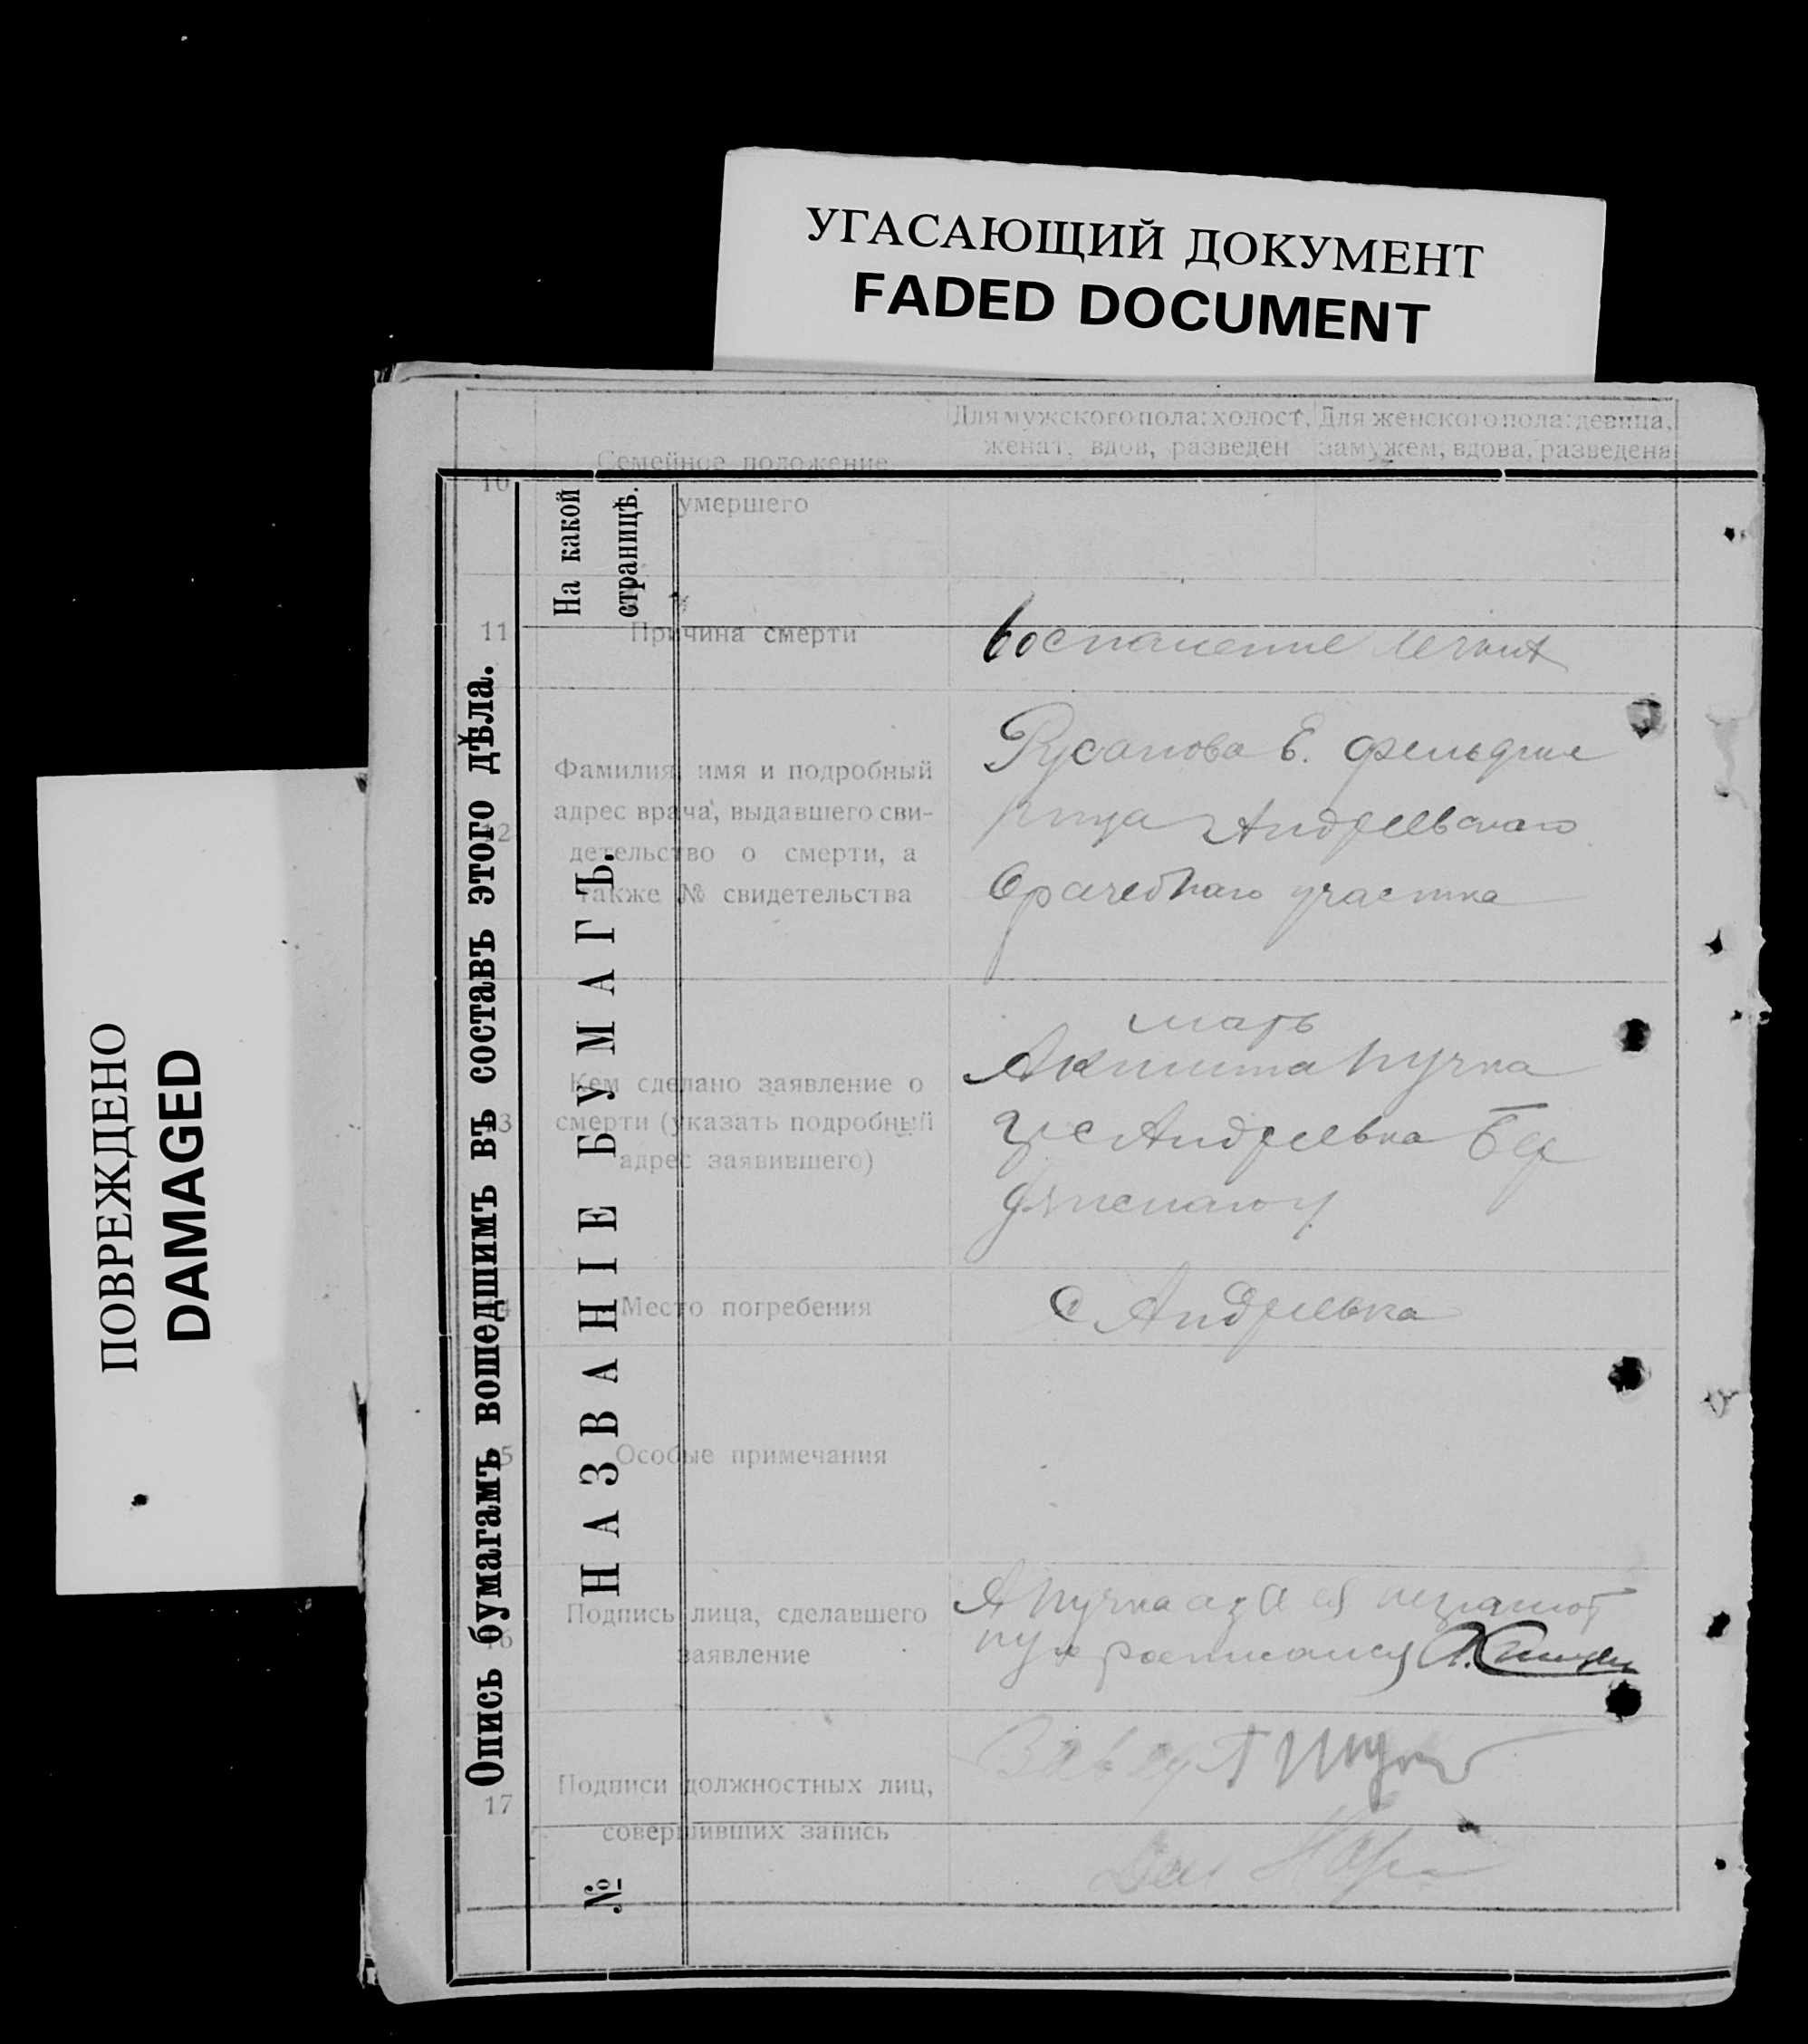 УГАСАЮЩИЙ ДОКУМЕНТ
FADED DOCUMENT
ПОВРЕЖДЕНО
DAMAGED
Опись бумагамъ вошедшимъ въ составъ этого дѣла.
На какой
страницѣ.
НАЗВАНІЕ БУМАГЪ.
№
Для мужского пола: холост,
женат, вдов, разведен
Для женского пола: девица,
замужем, вдова, разведена
10
Семейное положение
умершего
11
Причина смерти
Воспаление легких
12
Фамилия, имя и подробный
адрес врача, выдавшего сви-
детельство о смерти, а
также № свидетельства
Русанова Е. фельдше
рица Андреевскаго
врачебнаго участка
13
Кем сделано заявление о
смерти (указать подробный
адрес заявившего)
мать
Пучка
с Андреевка Бер
14
Место погребения
с Андреевка
15
Особые примечания
16
Подпись лица, сделавшего
заявление
А Пучка а за ея неграмот
17
Подписи должностных лиц,
совершивших запись